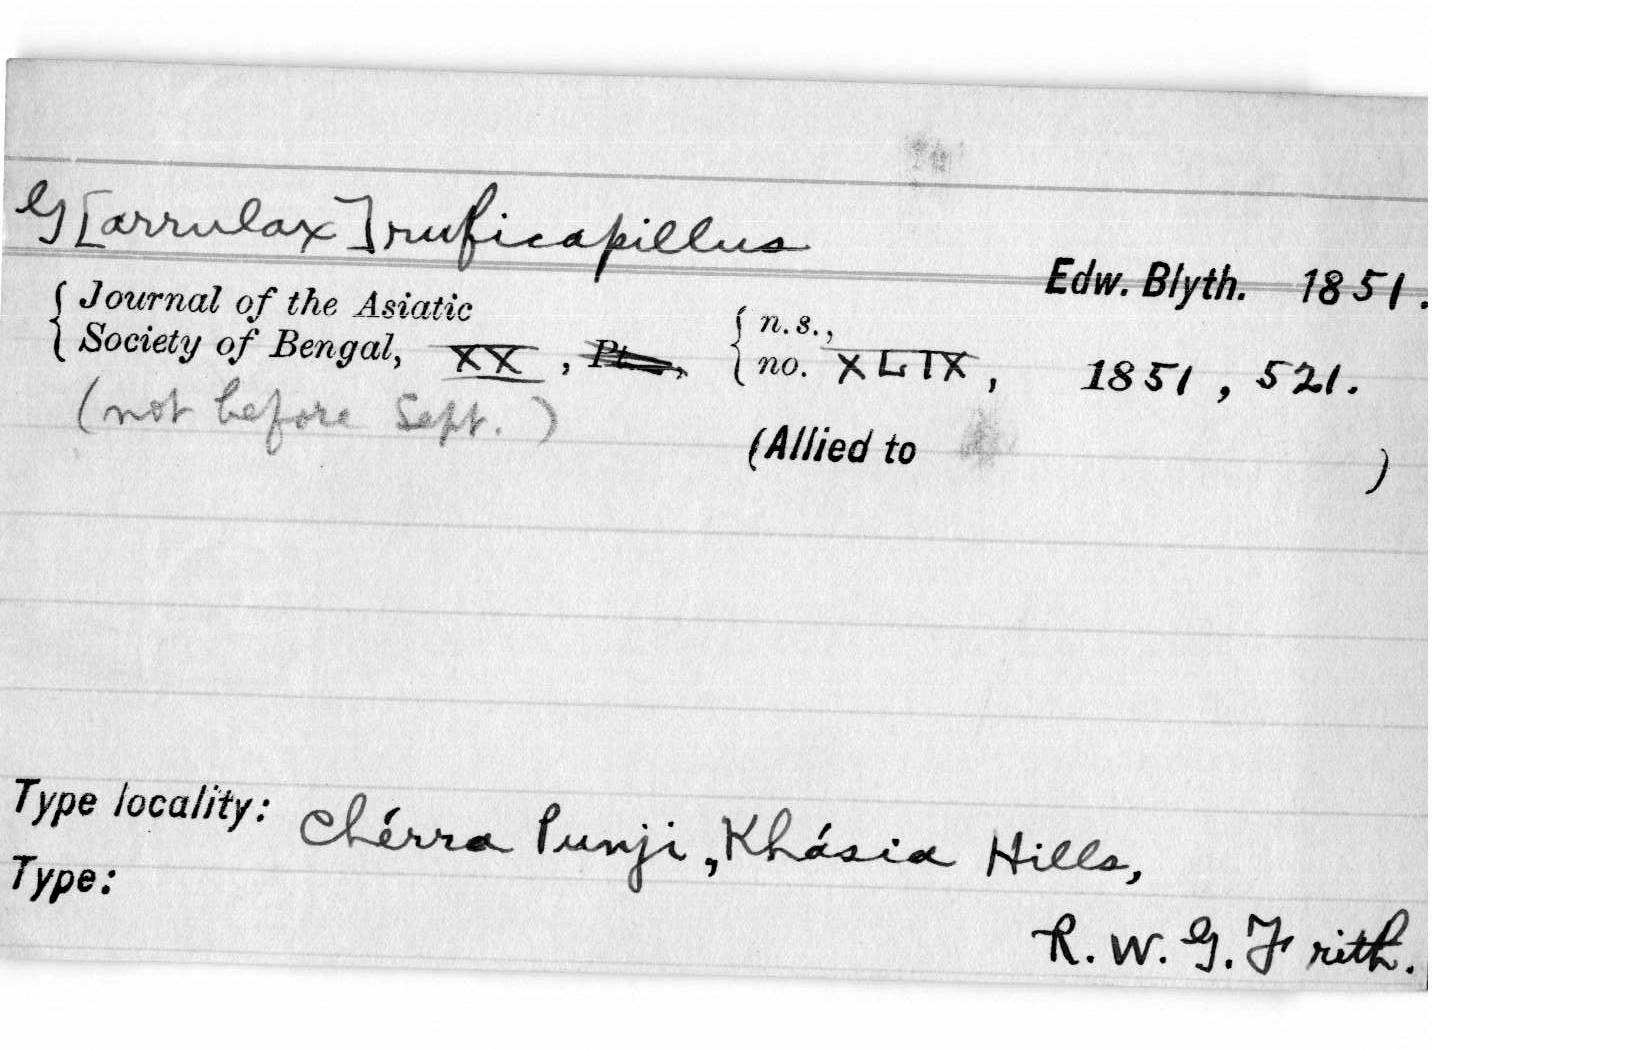 G[arrulax] ruficapillus
Edw. Blyth. 1851.
{ Journal of the Asiatic
Society of Bengal, XX, Pt., { n.s., no. XLIX, 1851, 521.
(not before Sept.)
(Allied to )
Type locality: Chérra Punji, Khásia Hills,
Type:
R. W. G. Frith.